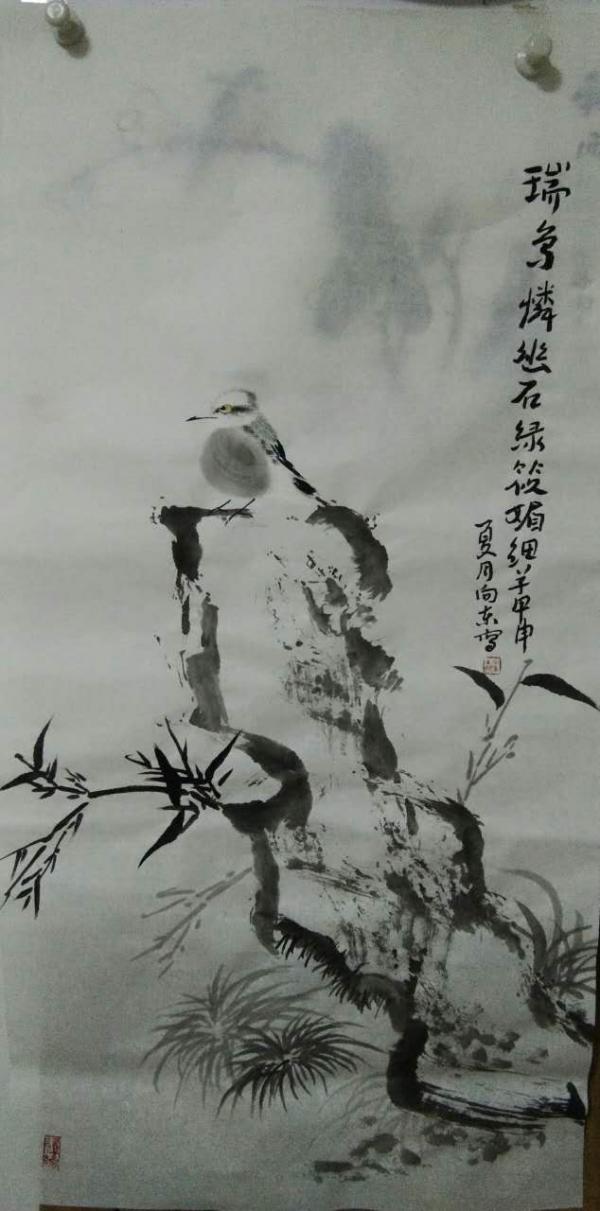 瑞鸟憐幽石绿筱媚细芊甲申
夏月向东写